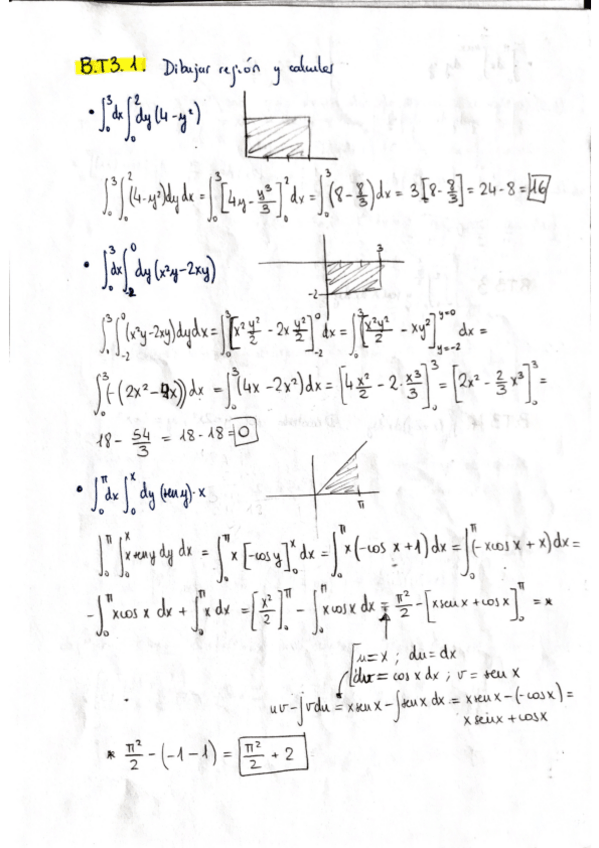 B.T3.1. Dibujar región y calcular
• ∫₀³dx∫₀²dy(4-y²)
∫₀³∫₀²(4-y²)dydx = ∫₀³[4y-y³/3]₀²dx = ∫₀³(8-8/3)dx = 3[8-8/3] = 24-8 = 16
• ∫₀³dx∫₋₂⁰dy(x²y-2xy)
3
-2
∫₀³∫₋₂⁰(x²y-2xy)dydx = ∫₀³[x²y²/2 - 2x y²/2]₋₂⁰dx = ∫₀³[x²y²/2 - xy²]y=0 y=-2 dx =
∫₀³(-(2x²-4x))dx = ∫₀³(4x-2x²)dx = [4x²/2 - 2·x³/3]₀³ = [2x² - 2/3x³]₀³ =
18 - 54/3 = 18-18 = 0
• ∫₀^π dx∫₀^x dy(sen y)·x
π
∫₀^π∫₀^x x sen y dy dx = ∫₀^π x[-cos y]₀^x dx = ∫₀^π x(-cos x+1)dx = ∫₀^π(-xcos x + x)dx =
-∫₀^π xcos x dx + ∫₀^π x dx = [x²/2]₀^π - ∫₀^π xcos x dx = π²/2 - [xsen x + cos x]₀^π = *
u=x; du=dx
dv=cos x dx; v=sen x
uv-∫vdu = xsen x-∫sen x dx = xsen x-(-cos x) =
x sen x + cos x
* π²/2 - (-1-1) = π²/2 + 2